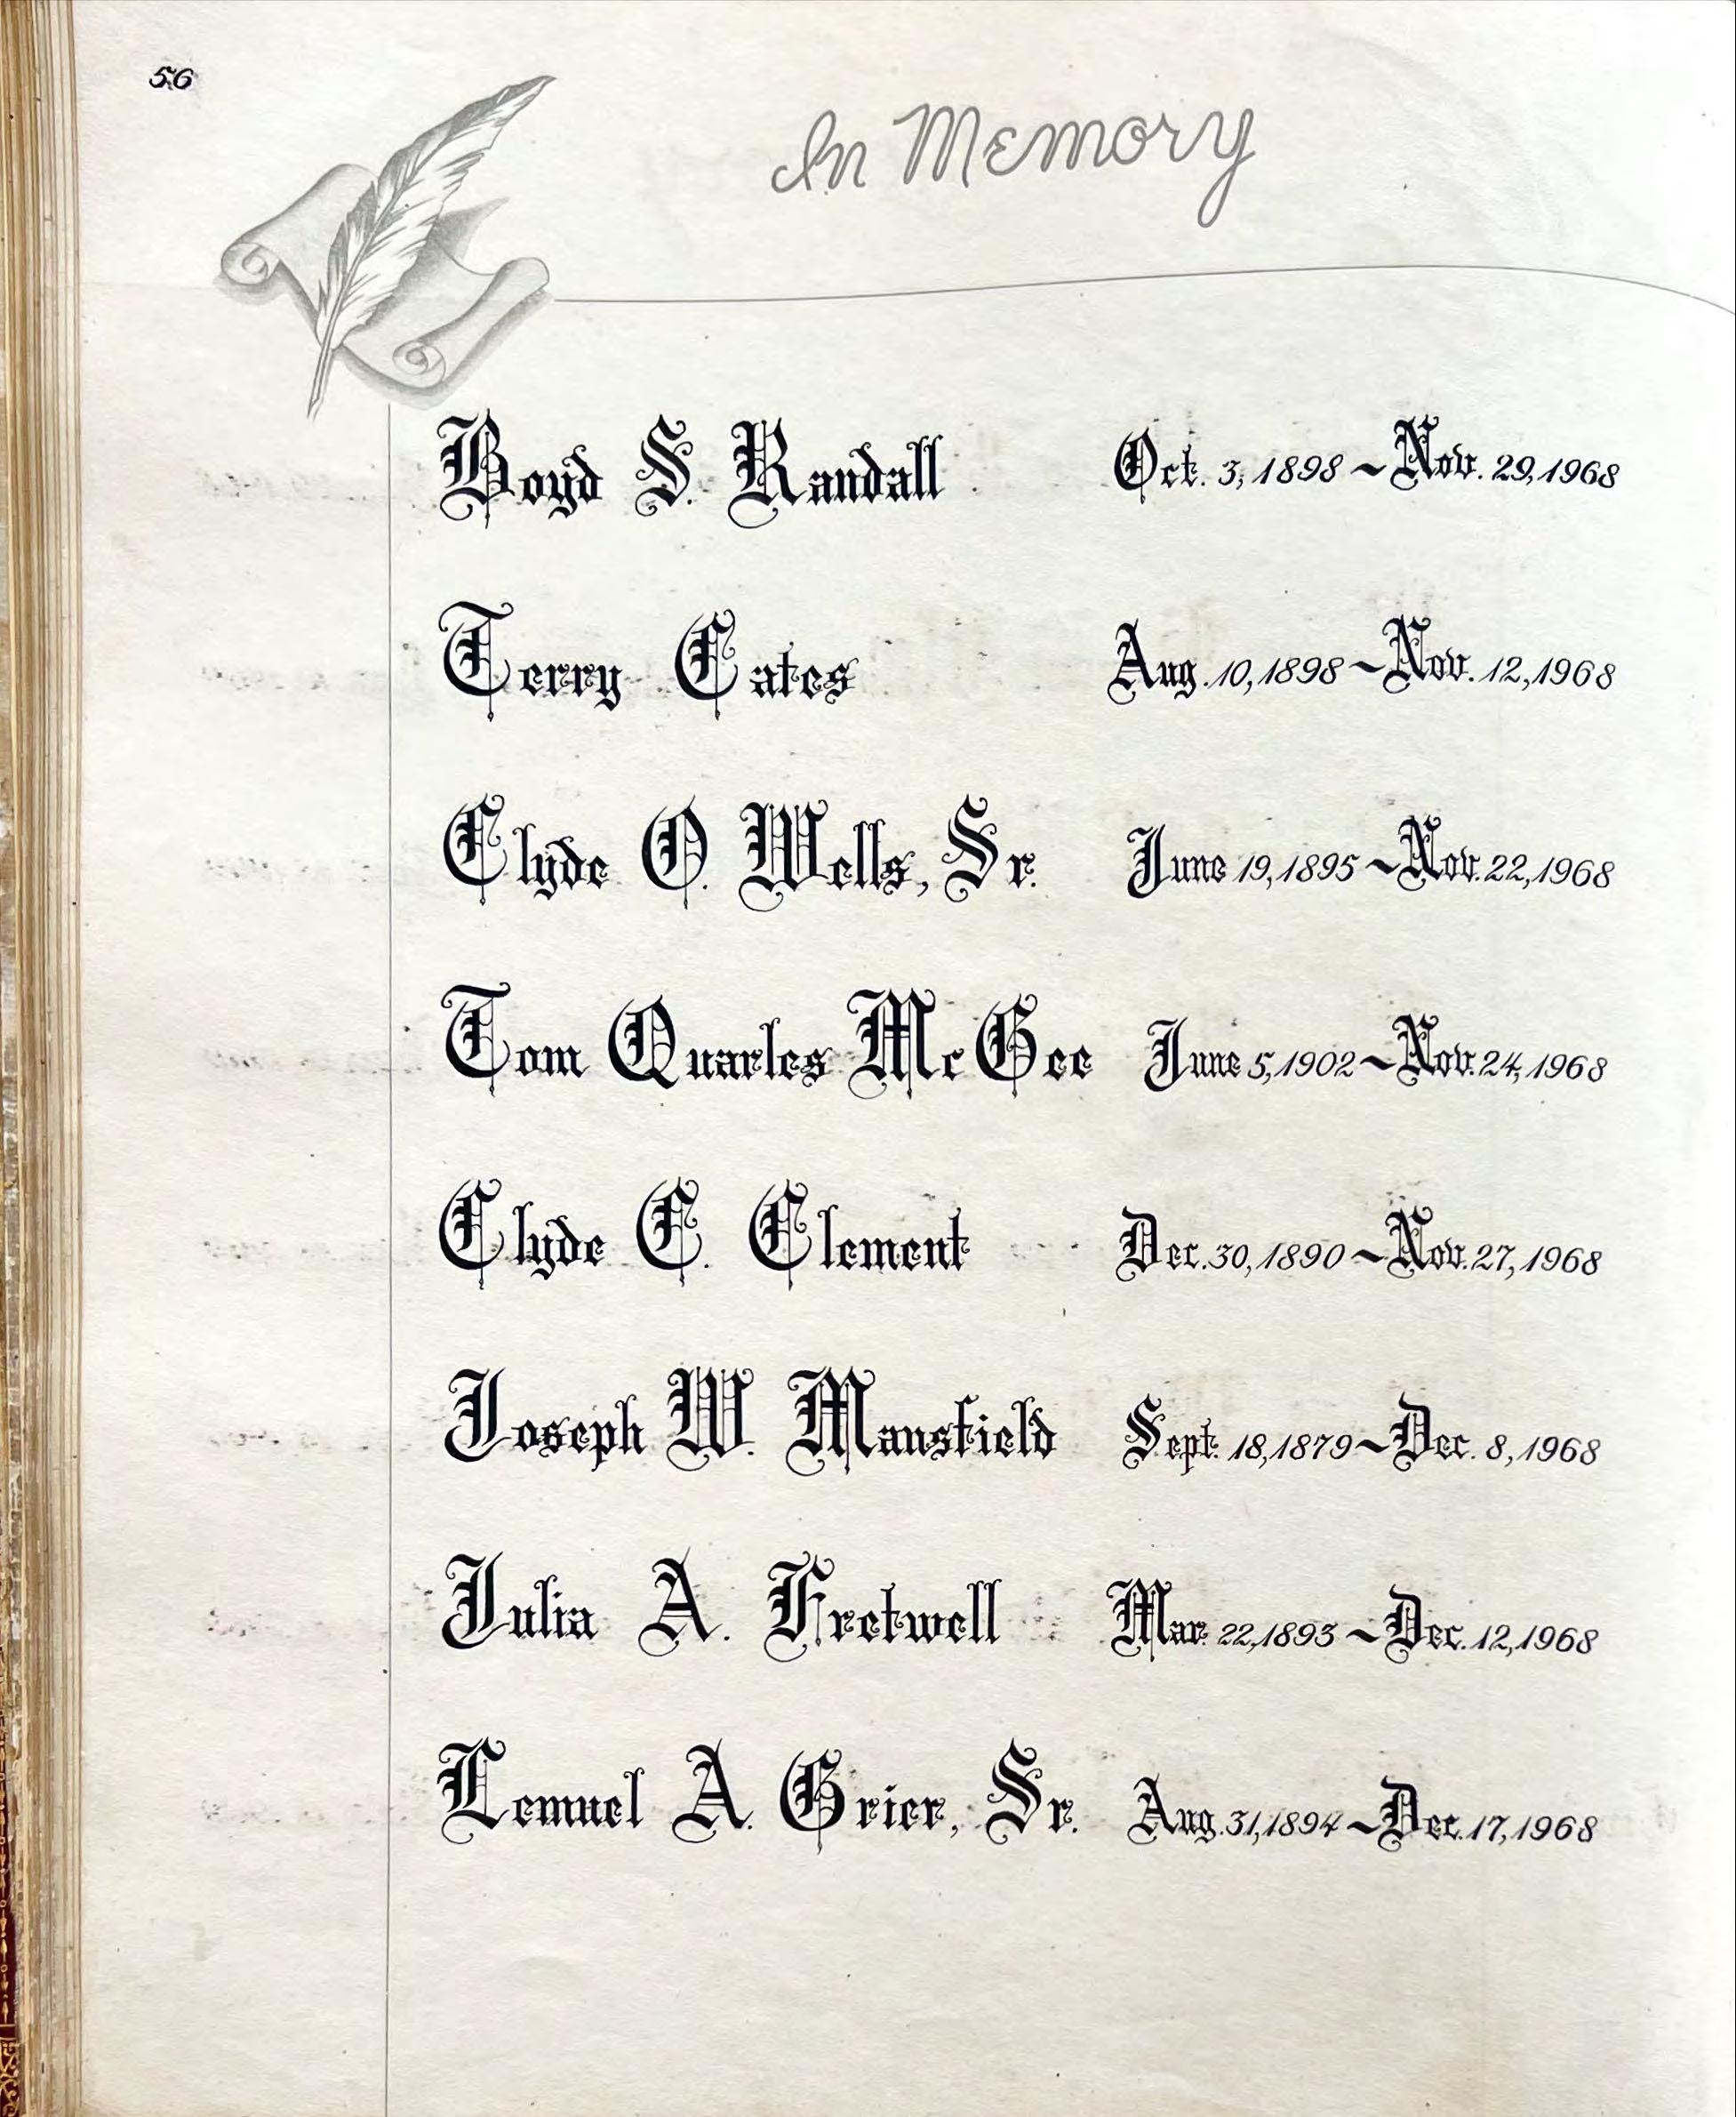 56
In Memory
Boyd S. Randall Oct. 3, 1898 ~ Nov. 29, 1968
Terry Cates Aug. 10, 1898 ~ Nov. 12, 1968
Clyde O. Wells, Sr. June 19, 1895 ~ Nov. 22, 1968
Tom Quarles McGee June 5, 1902 ~ Nov. 24, 1968
Clyde C. Clement Dec. 30, 1890 ~ Nov. 27, 1968
Joseph W. Mansfield Sept. 18, 1879 ~ Dec. 8, 1968
Julia A. Fretwell Mar. 22, 1893 ~ Dec. 12, 1968
Lemuel A. Grier, Sr. Aug. 31, 1894 ~ Dec. 17, 1968